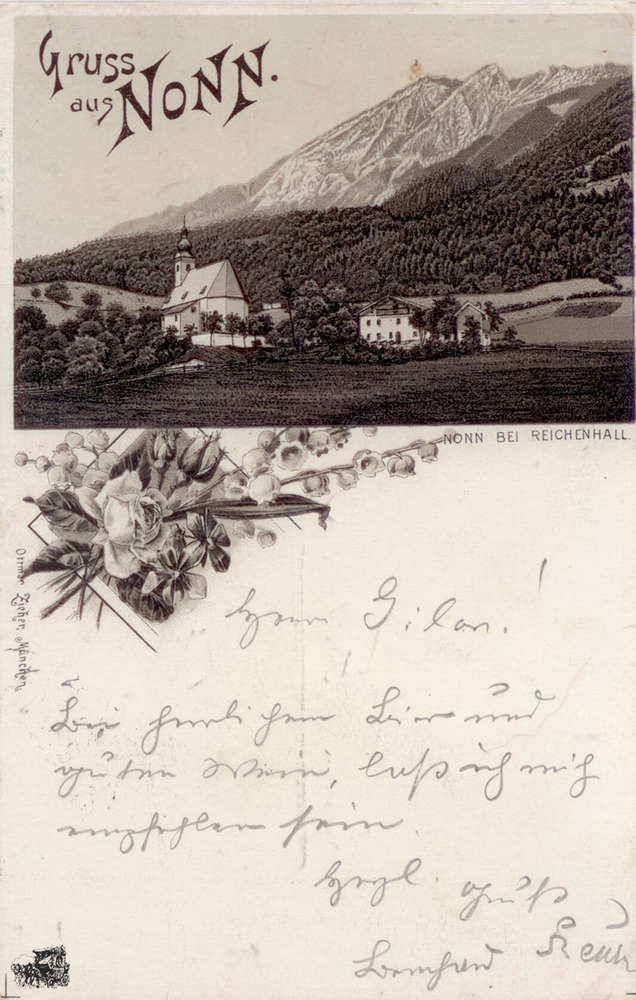 Gruss
aus NONN.
NONN BEI REICHENHALL.
Ottmar Zieher, München.
Herrn Gilar.!
Bei herrlichem Bier und
guten Wein, laß ich mich
empfohlen sein.
Herzl. Gruß
Bernhard